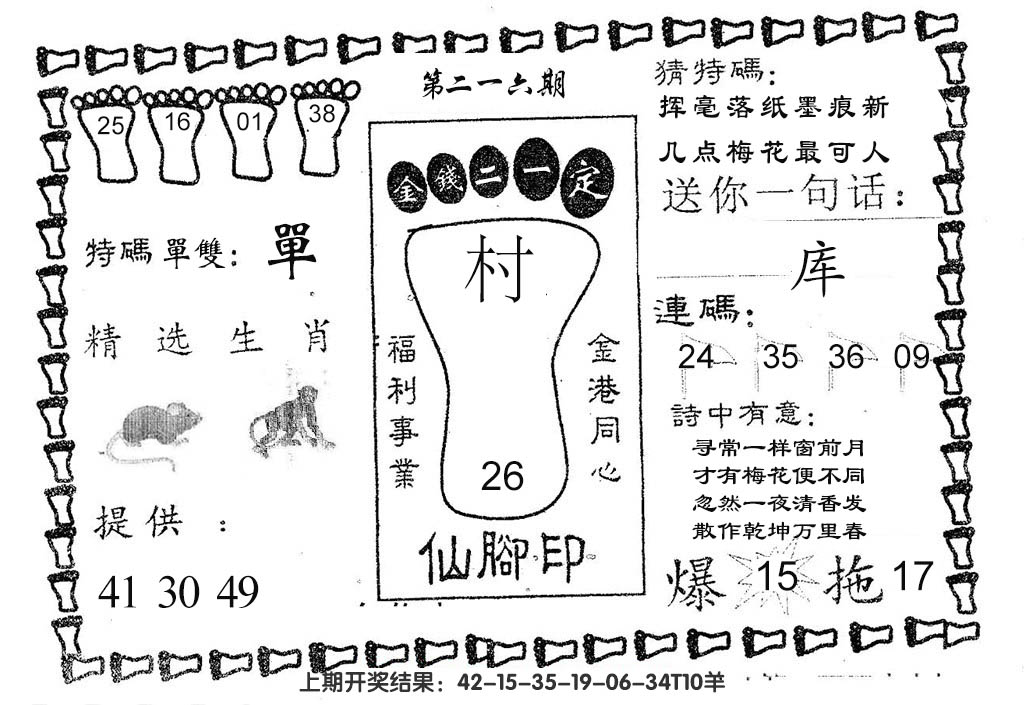 第二一六期
25 16 01 38
特碼單雙: 單
精选生肖
提供:
41 30 49
金錢二一定
村
福利事業
金港同心
26
仙腳印
猜特碼:
挥毫落纸墨痕新
几点梅花最可人
送你一句话:
库
連碼:
24 35 36 09
詩中有意:
寻常一样窗前月
才有梅花便不同
忽然一夜清香发
散作乾坤万里春
爆 15 拖 17
上期开奖结果: 42-15-35-19-06-34T10羊